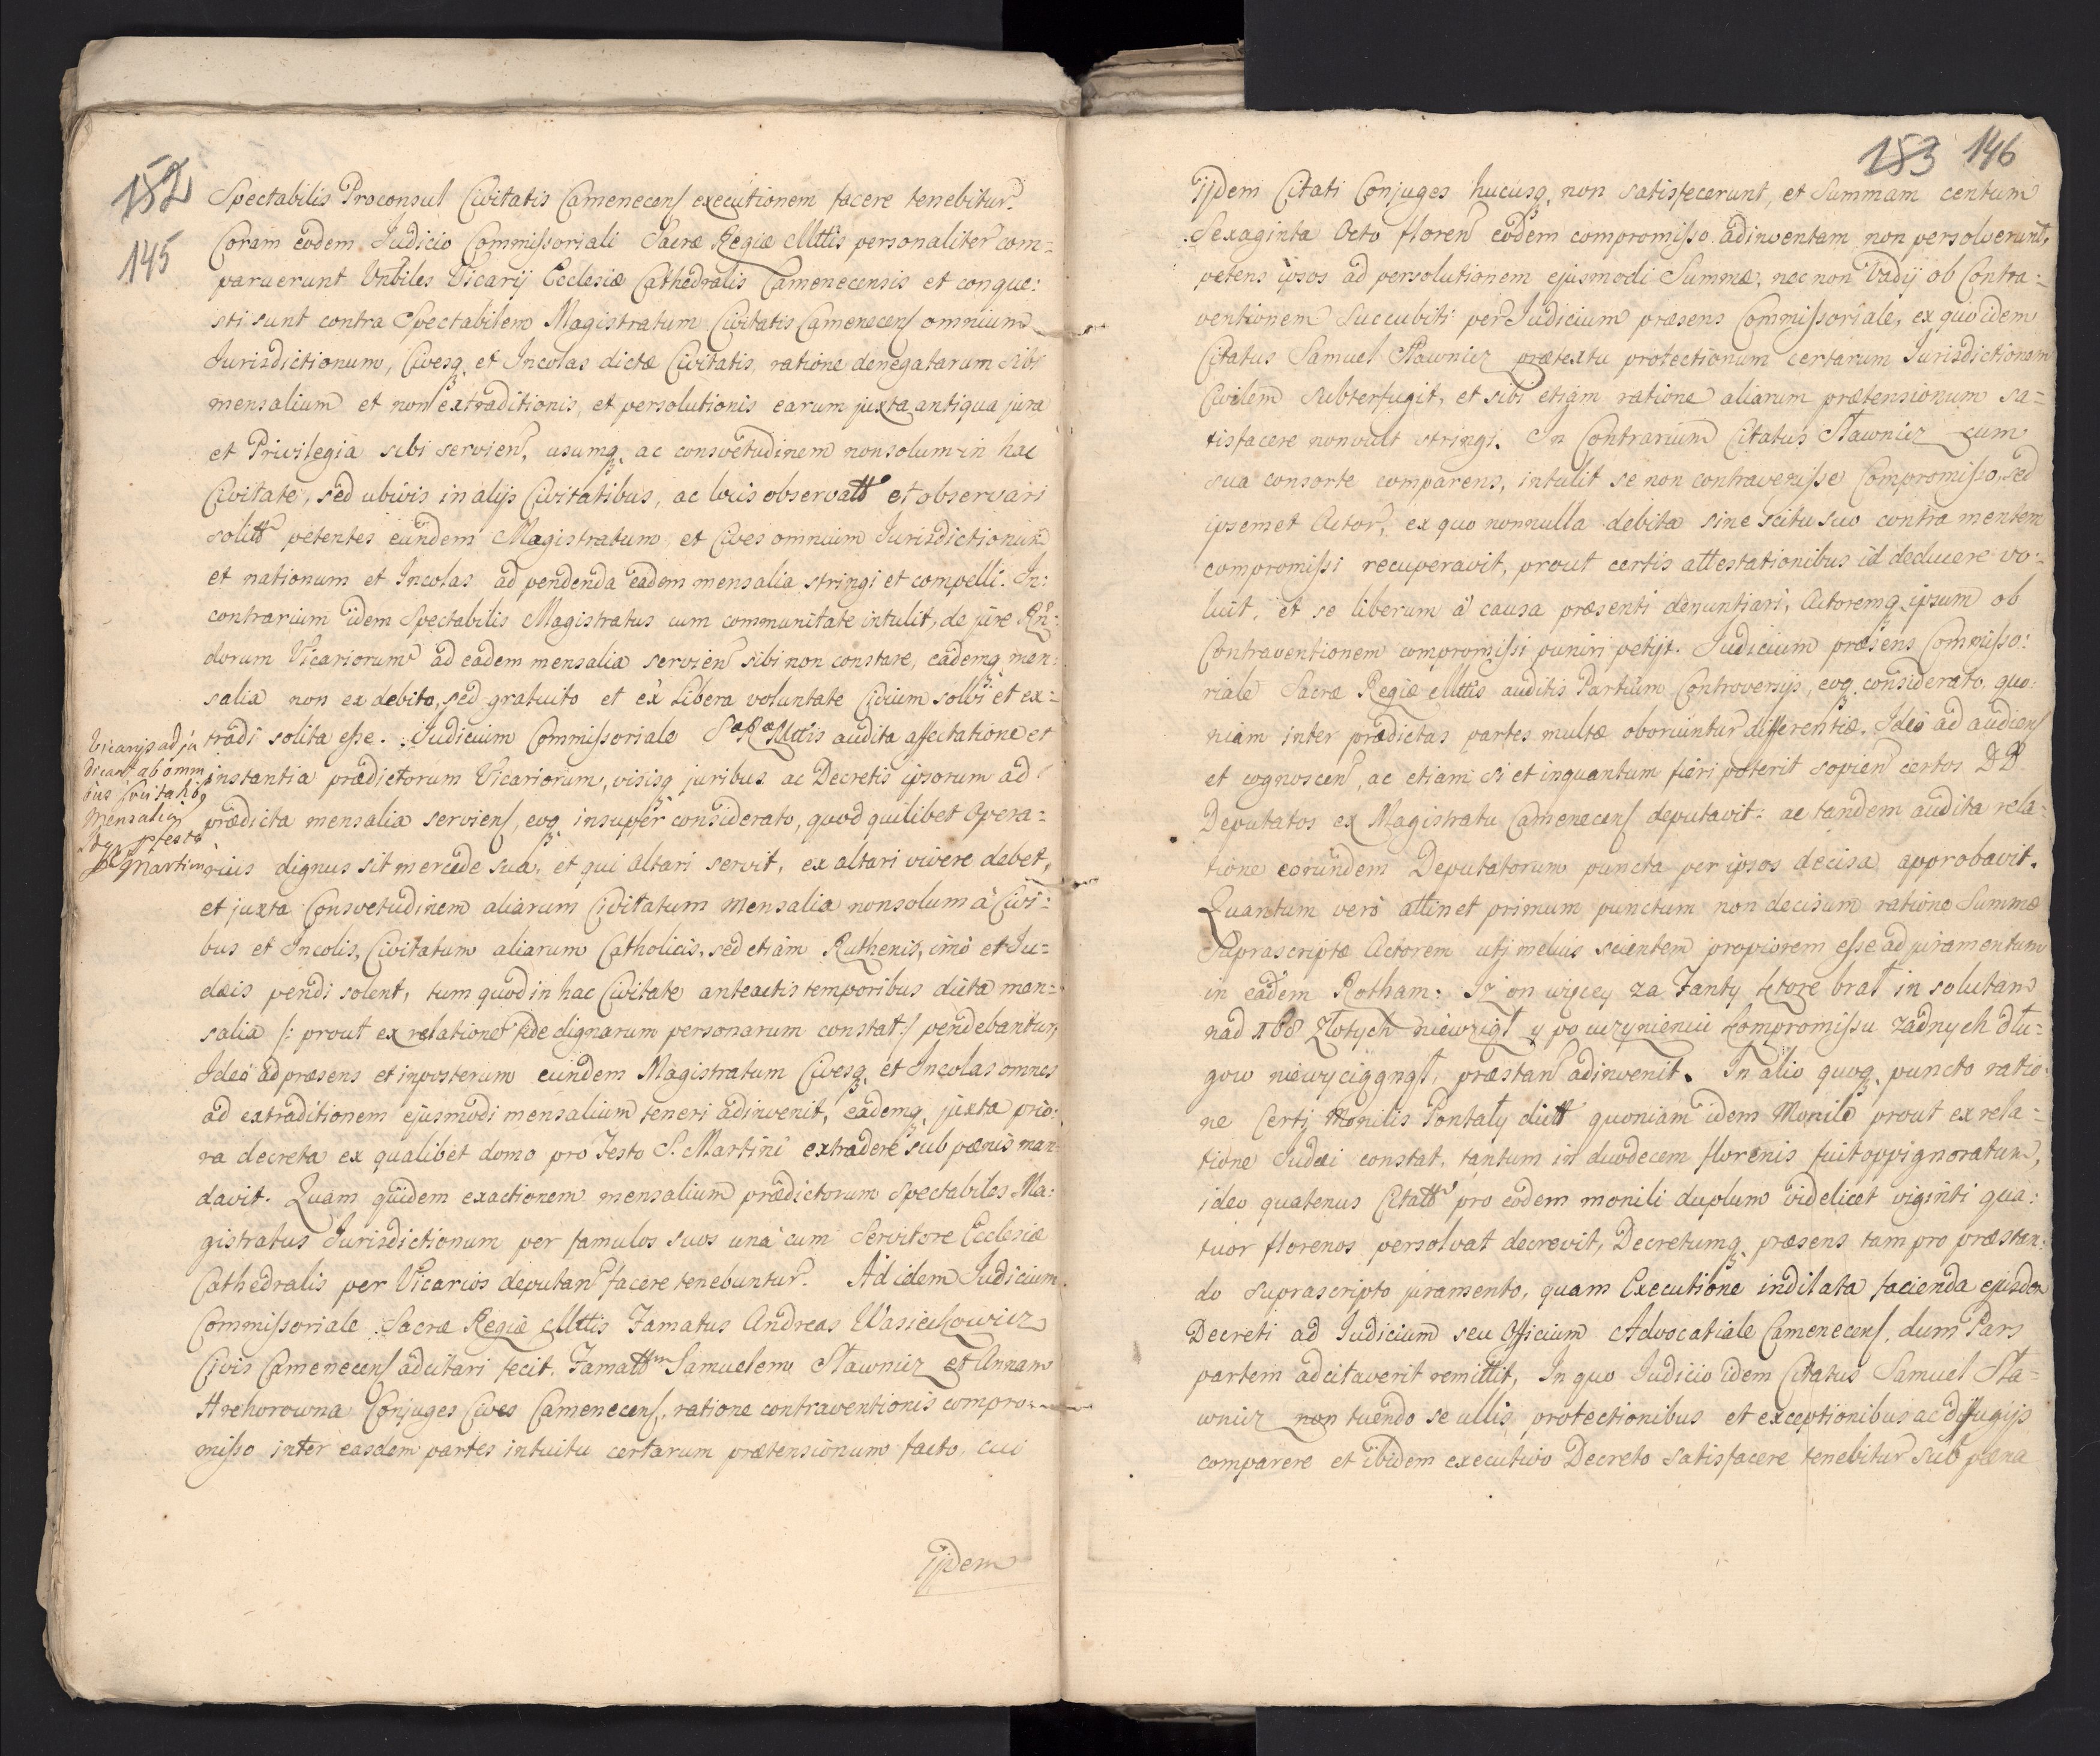 152
145
Spectabilis Proconsul Civitatis Camenecens executionem facere tenebitur.
Coram eodem Judicio Commissoriali Sacræ Regiæ Mttis personaliter com=
paruerunt Vnbiles Vicarij Ecclesiæ Cathedralis Camenecensis et conque:
sti sunt contra Spectabilem Magistratum Civitatis Camenecens omnium
Jurisdictionum, Civesq et Incolas dictæ Civitatis, ratione denegatarum sibi
mensalium et non extraditionis, et persolutionis earum juxta antiqua jura
et Privilegia sibi servien, usumq ac consvetudinem non solum in hac
Civitate, sed ubivis in alijs Civitatibus, ac locis observatt et observari
solitt petentes eundem Magistratum et Cives omnium Jurisdictionum
et nationum et Incolas ad pendenda eadem mensalia stringi et compelli. In:
contrarium idem Spectabilis Magistratus cum communitate intulit, de jure Rn:
dorum Vicariorum ad eadem mensalia servien sibi non constare, eademq men:
salia non ex debito, sed gratuito et ex Libera voluntate Civium solvi et ex=
tradi solita esse. Judicium Commissoriale Sæ Ræ Mttis audita affectatione et
instantia prædictorum Vicariorum, visisq juribus ac Decretis ipsorum ad
prædicta mensalia serviens, eoq insuper considerato, quod quilibet Opera=
rius dignus sit mercede sua, et qui altari servit, ex altari vivere debet,
et juxta Consvetudinem aliarum Civitatum mensalia non solum à Civi=
bus et Incolis, Civitatum aliarum Catholicis, sed etiam Ruthenis, imò et Ju=
dæis pendi solent, tum quod in hac Civitate anteactis temporibus dicta men=
salia /: prout ex relatione fide dignarum personarum constat :/ pendebantur,
Ideo ad præsens et in posterum eundem Magistratum Civesq et Incolas omnes
ad extraditionem ejusmodi mensalium teneri adinvenit, eademq juxta prio:
ra decreta ex qualibet domo pro Festo S. Martini extradere sub pœnis man:
davit. Quam quidem exactionem mensalium prædictorum Spectabiles Ma:
gistratus Jurisdictionum per famulos suos unà cum Servitore Ecclesiæ
Cathedralis per Vicarios deputan facere tenebuntur. Ad idem Judicium
Commissoriale Sacræ Regiæ Mttis Famatus Andreas Wasiechowicz
Civis Camenecens adcitari fecit. Famattm Samuelem Sławnicz et Annam
Hrehorowna Conjuges Cives Camenecens, ratione contraventionis compro=
misso inter easdem partes intuitu certarum prætensionum facto, cui
Ijdem
Vicarijs adju
dicant ab omni
bus Civitatib
Mensalia
festo
Martini
153 146
Ijdem Citati Conjuges hucusq non satisfecerunt, et Summam centum
Sexaginta Octo floren eodem compromisso adinventam non persolverunt,
petens ipsos ad persolutionem ejusmodi Summæ, nec non Vadij ob Contra=
ventionem Succubiti per Judicium præsens Commissoriale, ex quo idem
Citatus Samuel Sławnicz prætextu protectionum certarum Jurisdictionem
Civilem subterfugit, et sibi etiam ratione aliarum prætensionum sa=
tisfacere non vult stringi. In Contrarium Citatus Sławnicz cum
sua consorte comparens, intulit se non contravenisse Compromisso, sed
ipsemet Actor, ex quo nonnulla debita sine scitu suo contra mentem
compromissi recuperavit, prout certis attestationibus id deducere vo=
luit, et se liberum à causa præsenti denuntiari, Actoremq ipsum ob
Contraventionem compromissi puniri petijt. Judicium præsens Commisso:
riale Sacræ Regiæ Mttis auditis Partium Controversijs, eoq considerato, quo:
niam inter prædictas partes multæ oboriuntur differentiæ, Ideo ad audien
et cognoscen, ac etiam si et inquantum fieri poterit sopien certos DD
Deputatos ex Magistratu Camenecens deputavit: ac tandem audita rela=
tione eorundem Deputatorum puncta per ipsos decisa approbavit.
Quantum verò attinet primum punctum non decisum ratione Summæ
Suprascriptæ Actorem uti melius scientem propiorem esse ad juramentum
in eadem Rotham: Iż on więcey za Fanty ktore brał in solutum
nad 168 Złotych niewziął y po uczynieniu kompromissu żadnych dłu=
gow niewyciągnął, præstan adinvenit. In alio quoq puncto ratio:
ne Certi Monilis Pontały dictt quoniam idem Monile prout ex rela=
tione Judæi constat, tantum in duodecem florenis fuit oppignoratum,
ideo quatenus Citatt pro eodem monili duplum videlicet viginti qua:
tuor florenos persolvat decrevit, Decretumq præsens tam pro præstan:
do suprascripto juramento, quam Executione indilata facienda ejusdem
Decreti ad Judicium seu Officium Advocatiale Camenecens, dum Pars
partem adcitaverit remittit, In quo Judicio idem Citatus Samuel Sła=
wnicz non tuendo se ullis protectionibus et exceptionibus ac diffugijs
comparere et ibidem executivo Decreto satisfacere tenebitur sub pœna